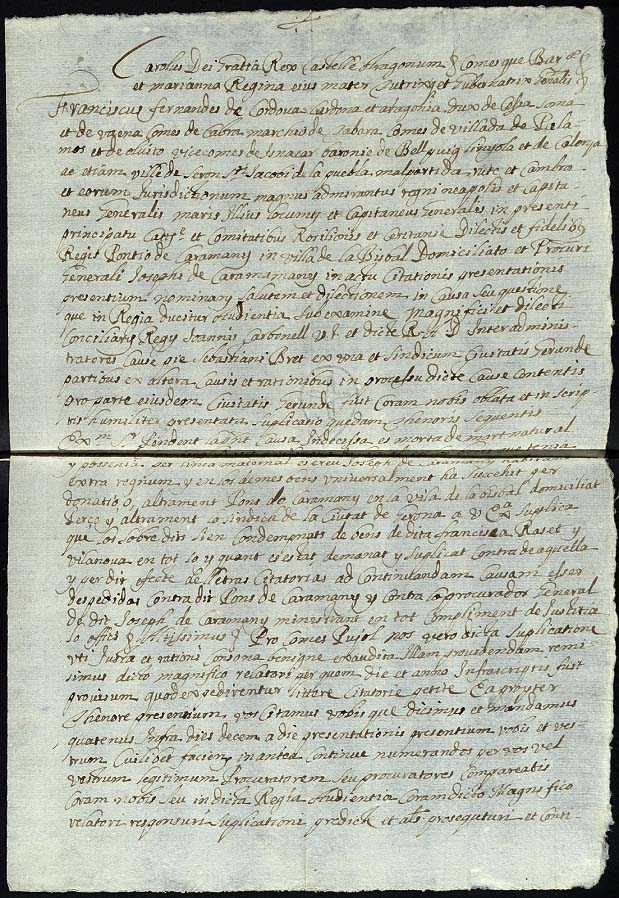 Carolus Dei Gratia Rex Castelle Aragonum & Comes que Bar.e
et marianna Regina eius mater Tutrix et Gubernatrix Gnalis
Franciscus fernandes de Cordova Cardona et aragonia dux de Cessa Soma
et de vaena Comes de Cabra marchio de Tabara Comes de villada de Pala
mos et de olivito vice comes de Isnacar baronie de Bellpuig linyola et de Calonja
ac etiam ville de Seron Sti. Jacobi de la puebla malpartida rute et Cambra
et eorum Jurisdictionum magnus admirantus regni neapolis et Capita
neus Generalis maris illius locum et Capitaneus Generalis in presenti
principatu Cat.e et Comitatibus Rosilionis et Ceritanie Dilectis et fidelibus
Regii Pontio de Caramany in villa de la Bisbal Domiciliato et Procuri
Generali Josephi de Caramamany in actu Citationis presentationis
presentium nominan Salutem et dilectionem in Causa seu questione
que in Regia ducitur Audientia sub examine magnifici et dilecti
Conciliarii Regii Joannis Carbonell et dicte R. Inter adminis
tratores Cause pie Sebastiani Bret ex una et Sindicum Civitatis Gerunde
partibus ex altera Causis et rationibus in processu dicte Cause Contentis
pro parte eiusdem Civitatis Gerunde fuit Coram nobis oblata et in scrip
tis humiliter presentata suplicatio quedam thenoris sequentis
Exm Sr. Pendent la dit Causa Indecissa es morta de mort natural
y possehia per linea maternal es Joseph de Caramany que tenia
extra regnum y en los demes bens universalment ha succehit per
donatio o altrament Pons de Caramany en la vila de la bisbal domiciliat
Perço y altrament lo sindich de la Ciutat de Gerona a V Ex.a Suplica
que los sobre dits sien Condempnats de bens de dita francisca Raset y
vilanova en tot lo y quant es estat demanat y suplicat Contra de aquella
y per dit efecte de lletras Citatorias ad Continuandam Causam esser
despedidas Contra dit Pons de Caramany y Contra lo procurador General
de dit Joseph de Caramany ministrant en tot Compliment de Justitia
lo offici & Altissimus & Pro Comes Pujol nos vero dicta suplicatione
uti Justa et rationi Consona benigne exaudita Illam providendam remi
simus dicto magnifico relatori per quem die et anno Infrascriptis fuit
provisum quod expedirentur littere Citatorie petite Ea propter
Thenore presentium vos Citamus vobis que dicimus et mandamus
quatenus Infra dies decem a die presentationis presentium vobis et ves
trum Cuilibet facien in antea Continue numerandos per vos vel
vestrum legitimum Procuratorem seu procuratores Compareatis
Coram nobis seu in dicta Regia Audientia Coram dicto Magnifico
relatori responsuri suplicationi predicte et als prosequturi et Conti-